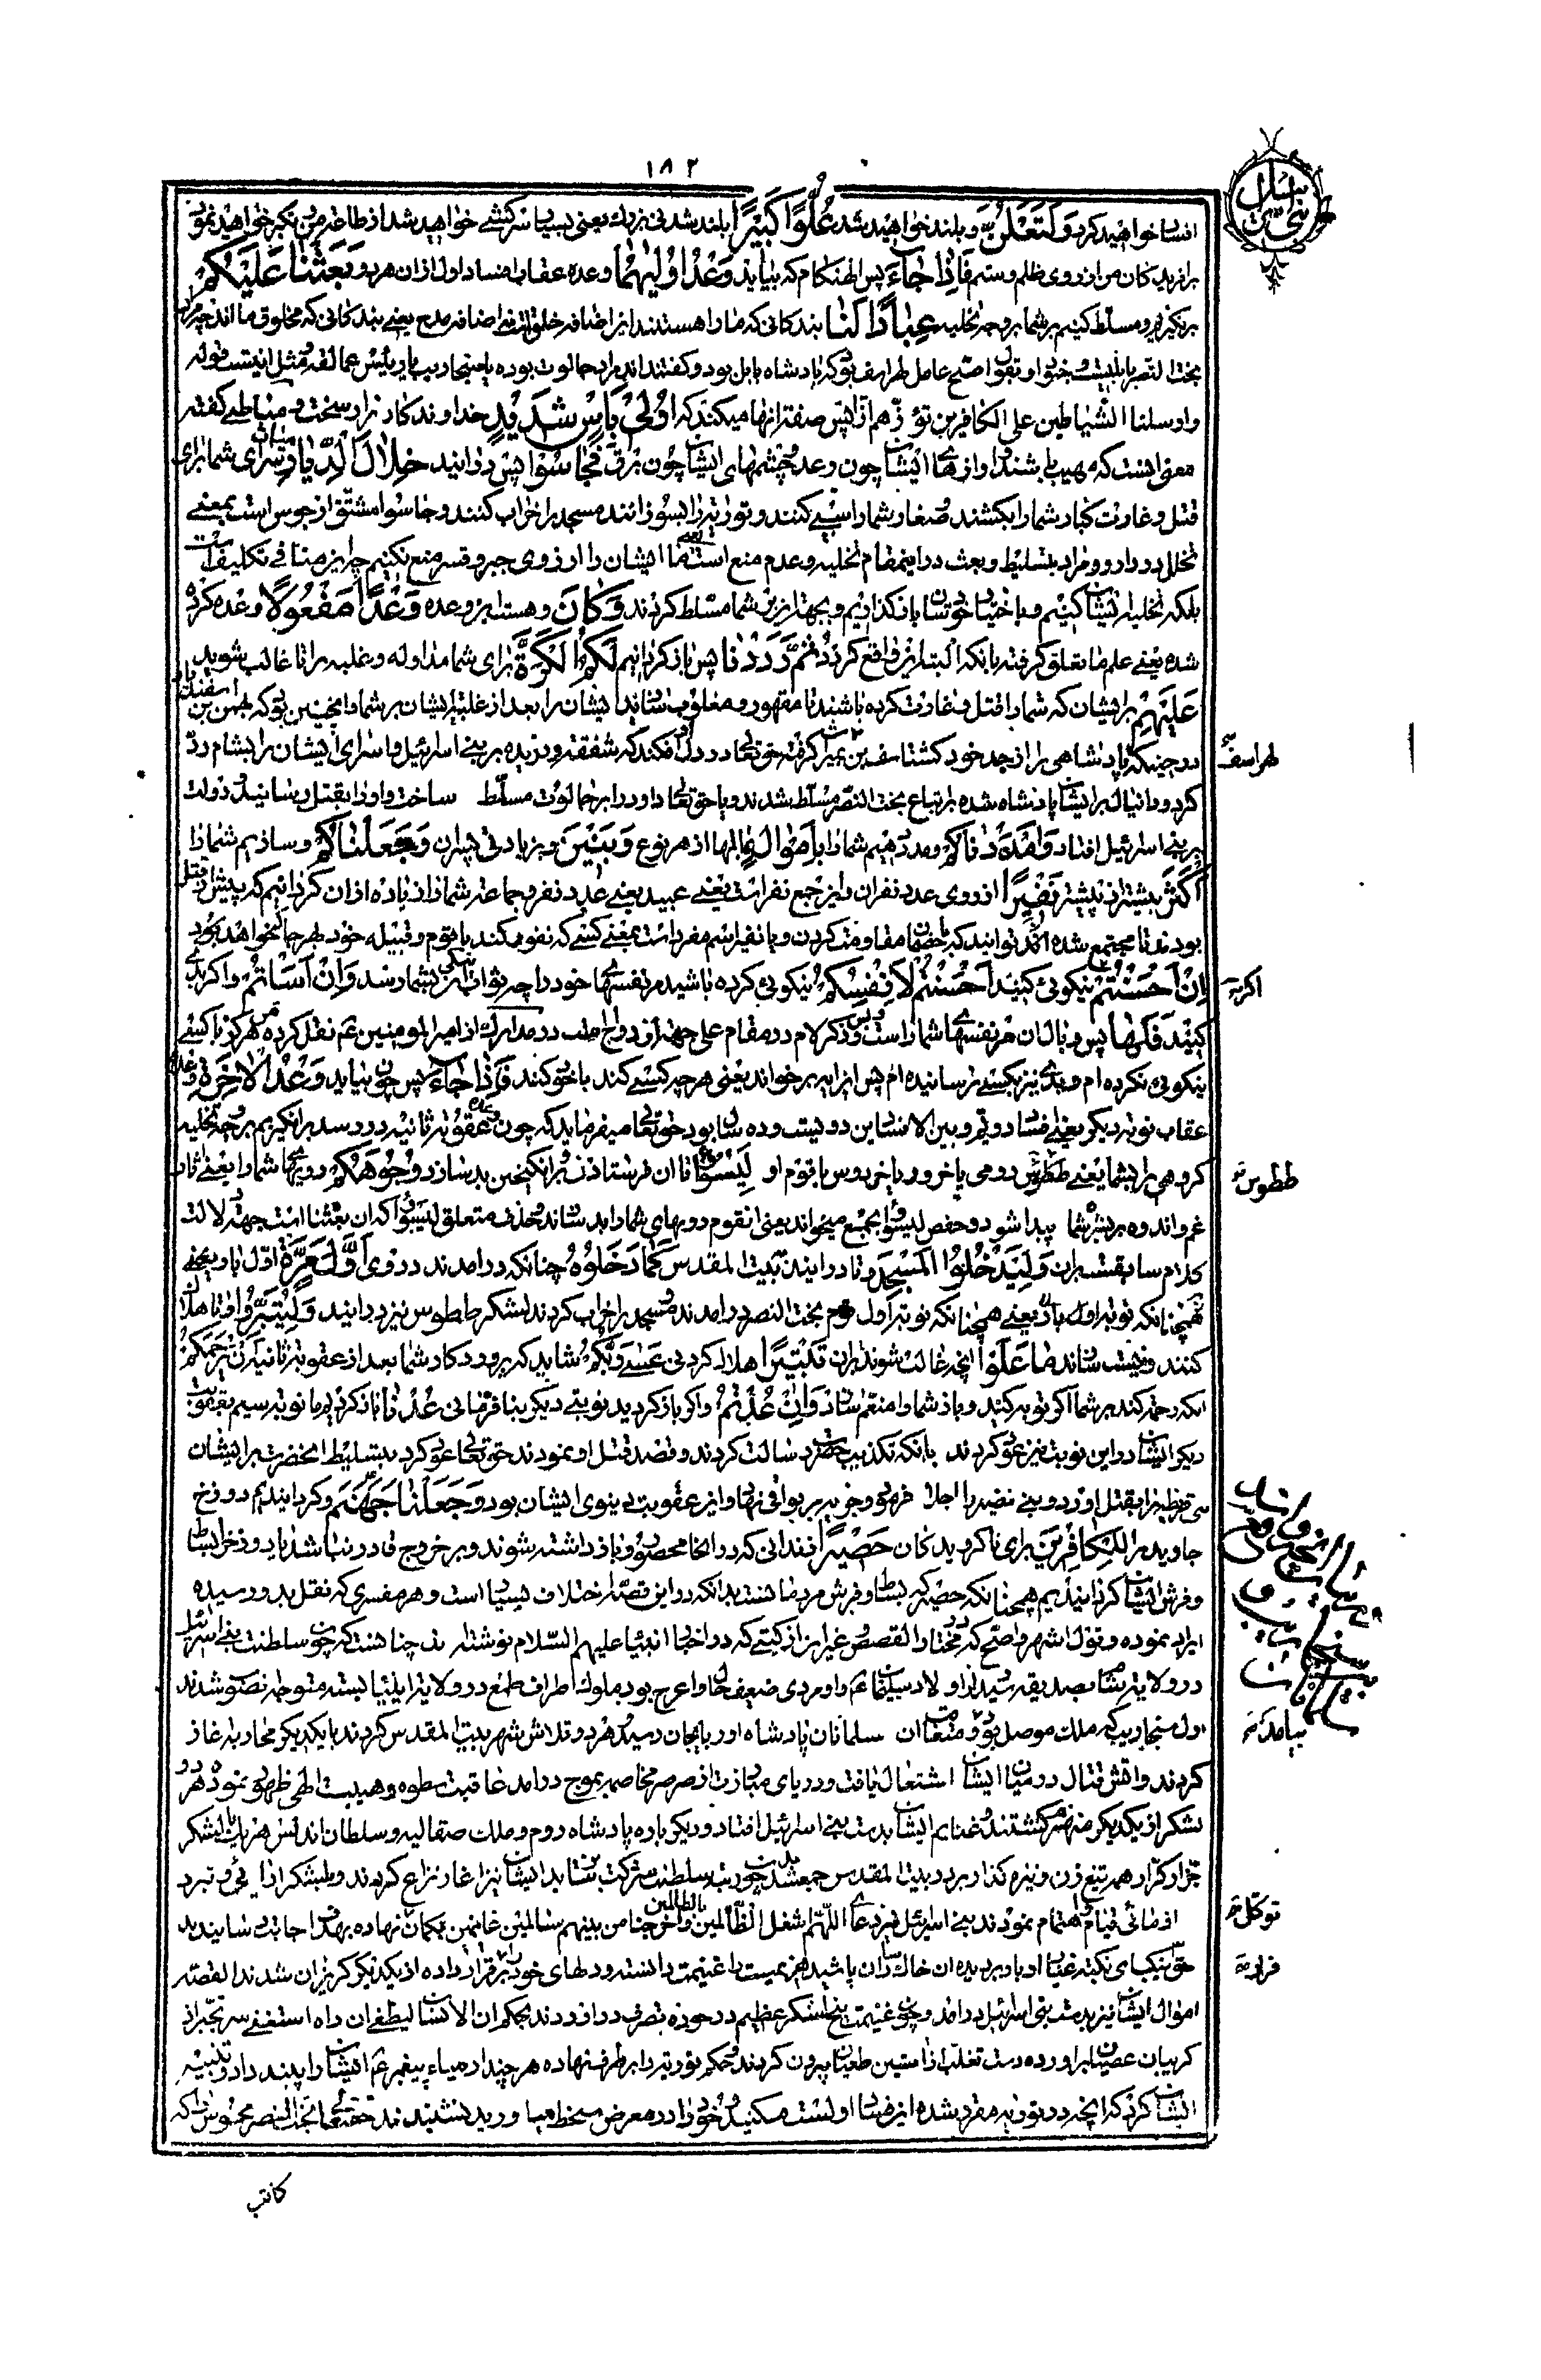 ۱۸۲
بنی اسرائیل
افساد خواهید کرد وَلَتَعْلُنَّ و بلند خواهید شد عُلُوًّا كَبِيرًا بلند شدنی بزرك یعنی بسیار سرکشی خواهید شد از طاعت من و تکبر خواهید نمود
بر افریدکان من از روی ظلم و ستم فَإِذَا جَاءَ پس انهنکام که بیاید وَعْدُ أُولَاهُمَا وعده عقاب افساد اول از ان هر دو بَعَثْنَا عَلَيْكُمْ
بر انکیزیم و مسلط کنیم بر شما بر وجه تخلیه عِبَادًا لَنَا بندکانی که ما را هستند این اضافه خلق است نه اضافه مدح یعنی بندکانی که مخلوق ما اند چه مراد
بخت النصر بابلیست و جنود او و بقول اصح عامل لهراسف بود که پادشاه بابل بود و کفته اند مراد جالوت بوده یا سنجاریب یا رئیس عمالقه و مثل اینست قوله
و ارسلنا الشیاطین علی الکافرین تؤزهم ازا پس صفت انها میکند که أُولِي بَأْسٍ شَدِيدٍ خداوند کارزار سخت و
معنی انست که مهیب باشند و اوازهای ایشان چون رعد و چشمهای ایشان چون برق فَجَاسُوا پس در ایند خِلَالَ الدِّيَارِ میان سرای شما برای
قتل و غارت کبار شما را بکشند و صغار شما را سبی کنند و توریة را بسوزانند و مسجد را خراب کنند و جاسوا مشتق از جوس است بمعنی
تخلل در دار و مراد بتسلیط و بعث در اینمقام تخلیه و عدم منع است یعنی ما ایشان را از روی جبر و قسر منع نکنیم چه این منافی تکلیف است
بلکه تخلیه ایشان کنیم و با خود ایشان باز کذاریم و بجهة این بر شما مسلط کردند وَكَانَ و هست این وعده وَعْدًا مَفْعُولًا وعده کرده
شده یعنی علم ما تعلق کرفته بانکه البته این واقع کردد ثُمَّ رَدَدْنَا پس باز کردانیم لَكُمُ الْكَرَّةَ برای شما مداوله و غلبه را تا غالب شوید
عَلَيْهِمْ بر ایشان که شما را قتل و غارت کرده باشند تا مقهور و مغلوب سازند ایشان را بعد از غلبه ایشان بر شما و اینچنین بود که بهمن بن اسفندیار
در حینیکه پادشاهی را از جد خود کشتاسف بن لهراسف کرفت حق تعالی در دل او افکند که شفقت ورزیده بر بنی اسرائیل و اسرای ایشان را بشام رد
کرد و دانیال بر ایشان پادشاه شده بر اتباع بخت النصر مسلط شدند و یا حق تعالی داود را بر جالوت مسلط ساخت و او را بقتل رسانید و دولت
بر بنی اسرائیل افتاد وَأَمْدَدْنَاكُمْ و مدد دهیم شما را بِأَمْوَالٍ بمالها از هر نوع وَبَنِينَ و بزیادتی پسران وَجَعَلْنَاكُمْ و سازیم شما را
أَكْثَرَ بیشتر از پیشتر نَفِيرًا از روی عدد نفران و این جمع نفر است یعنی عبید یعنی عدد نفر و جماعت شما را زیاده از ان کردانیم که پیش از قتل
بودند تا مجتمع شده با خصمان مقاومت کردن و یا نفیر اسم مفرد است بمعنی کسی که نفور میکند با قوم و قبیله خود بهر جا که خواهد بود
إِنْ أَحْسَنْتُمْ نیکوئی کنید أَحْسَنْتُمْ لِأَنْفُسِكُمْ نیکوئی کرده باشید مر نفسهای خود را چه ثواب ان نیکی بشما رسد وَإِنْ أَسَأْتُمْ و اکر بدی
کنید فَلَهَا پس وبال ان مر نفسهای شما راست و بس و ذکر لام در مقام علی جهة ازدواج است در مدارك از امیر المومنین عم نقل کرده که من هرکز با کسی
نیکوئی نکرده ام و بدی نیز بکسی نرسانیده ام پس این ایه بر خواند یعنی هر چه کسی کند با خود کند فَإِذَا جَاءَ پس چون بیاید وَعْدُ الْآخِرَةِ وعده
عقاب نوبت دیکر یعنی افساد دویم و بین الافسادین دویست و ده سال بود حق تعالی میفرماید که چون وعده عقوبت ثانیه در رسد بر انکیزیم بر وجه تخلیه
کروهی را بشما یعنی ططوس رومی یا خرور یا خردوس با قوم او لِيَسُوءُوا تا ان فرستاده شده برانکیختن بد سازد وُجُوهَكُمْ رویهای شما را یعنی اثار
غم و اندوه بر بشره شما پیدا شود و حفص لیسوؤا بجمع میخواند یعنی انقوم رویهای شما را بد سازند و حذف متعلق لیسوؤا که ان بعثنا است جهة دلالت
کلام سابقست بران وَلِيَدْخُلُوا الْمَسْجِدَ و تا در ایند در بیت المقدس كَمَا دَخَلُوهُ چنانکه در امدند در وی أَوَّلَ مَرَّةٍ اول بار یعنی
همچنانکه نوبت اول باز یعنی همچنانکه نوبت اول قوم بخت النصر در امدند و مسجد را خراب کردند لشکر ططوس نیز در ایند وَلِيُتَبِّرُوا و تا هلاك
کنند و نیست سازند مَا عَلَوْا انچه غالب شوند بران تَتْبِيرًا هلاك کردنی عَسَى رَبُّكُمْ شاید که پروردکار شما بعد از عقوبت ثانیه أَنْ يَرْحَمَكُمْ
انکه رحمت کند بر شما اکر توبه کنید و باز شما را منتعم سازد وَإِنْ عُدْتُمْ و اکر باز کردید نوبتی دیکر بنافرمانی عُدْنَا باز کردیم ما نوبت سیم بعقوبت
دیکر ایشان در این نوبت نیز عود کردند بانکه تکذیب حضرت رسالت کردند و قصد قتل او نمودند حق تعالی عود کرد بتسلیط انحضرت بر ایشان
تا بنی قریظه را بقتل اورد و بنی نضیر را اجلا فرمود و جزیه بر بواقی نهاد و این عقوبت دنیوی ایشان بود وَجَعَلْنَا جَهَنَّمَ و کردانیدیم دوزخ
جاوید را لِلْكَافِرِينَ برای ناکرویدکان حَصِيرًا زندانی که در انجا محصور و باز داشته شوند و بر خروج قادر نباشند یا دوزخ را بساط
و فرش ایشان کردانیدیم همچنانکه حصیر که بساط و فرش مردمانست بدانکه در این قصه اختلاف بسیار است و هر مفسری که نقل بدو رسیده
ایراد نموده و بقول اشهر و اصح که در مختار القصص و غیر این از کتبی که در اخبار انبیا علیهم السلام نوشته اند چنانست که چون سلطنت بنی اسرائیل
در ولایت شام بصدیقه رسید از اولاد سلیمان عم و او مردی ضعیف حال و اعرج بود ملوك اطراف طمع در ولایت ایلیا بسته متوجه ان صوب شدند
اول سنجاریب که ملك موصل بود و متعاقب ان سلمانان پادشاه اوربایجان رسید و هر دو تلاش شهر بیت المقدس کردند با یکدیکر محاربه اغاز
کردند و اتش قتال در میان ایشان اشتعال یافت و دریای مبارزت از صرصر مخاصمه بموج در امد عاقبت سطوه و هیبت الهی ظهور نمود و هر دو
لشکر از یکدیکر منهزم کشتند و غنایم ایشان بدست بنی اسرائیل افتاد و دیکر باره پادشاه روم و ملك صقالیه و سلطان اندلس هر یك با لشکر
جرار کرار همه تیغ زن و نیزه کذار بر در بیت المقدس جمع شدند و چون رتبه سلطنت شرکت بر نتابد ایشان نیز اغاز نزاع کردند و
ازمائی قیام و اهتمام نمودند بنی اسرائیل نیز دعای اللهم اشغل الظالمین بالظالمین و اخرجنا من بینهم سالمین غانمین
اموال ایشان نیز بدست بنی اسرائیل در امد و چون غنیمت پنج لشکر عظیم در حوزه تصرف در اوردند بحکم ان الانسان لیطغی ان راه استغنی سر تجبر از
کریبان عصیان بر اورده دست تغلب از استین طغیان بیرون کردند و حکم توریة را بر طرف نهاده هر چند ارمیاء پیغمبر عم ایشان را پند داد و تنبیه
ایشان کرد که انچه در توریة مقرر شده این خود را در معرض سخط میاورید نشنیدند حقتعالی بخت النصر مجوس را که
لهراسف
اکر
ططوس
بیامدند
توکل
فرار
کاتب